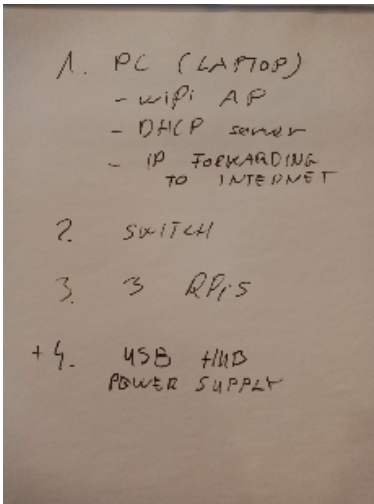 1. PC (LAPTOP)
- WiFi AP
- DHCP server
- IP FORWARDING
TO INTERNET
2. SWITCH
3. 3 RPis
+4. USB HUB
POWER SUPPLY